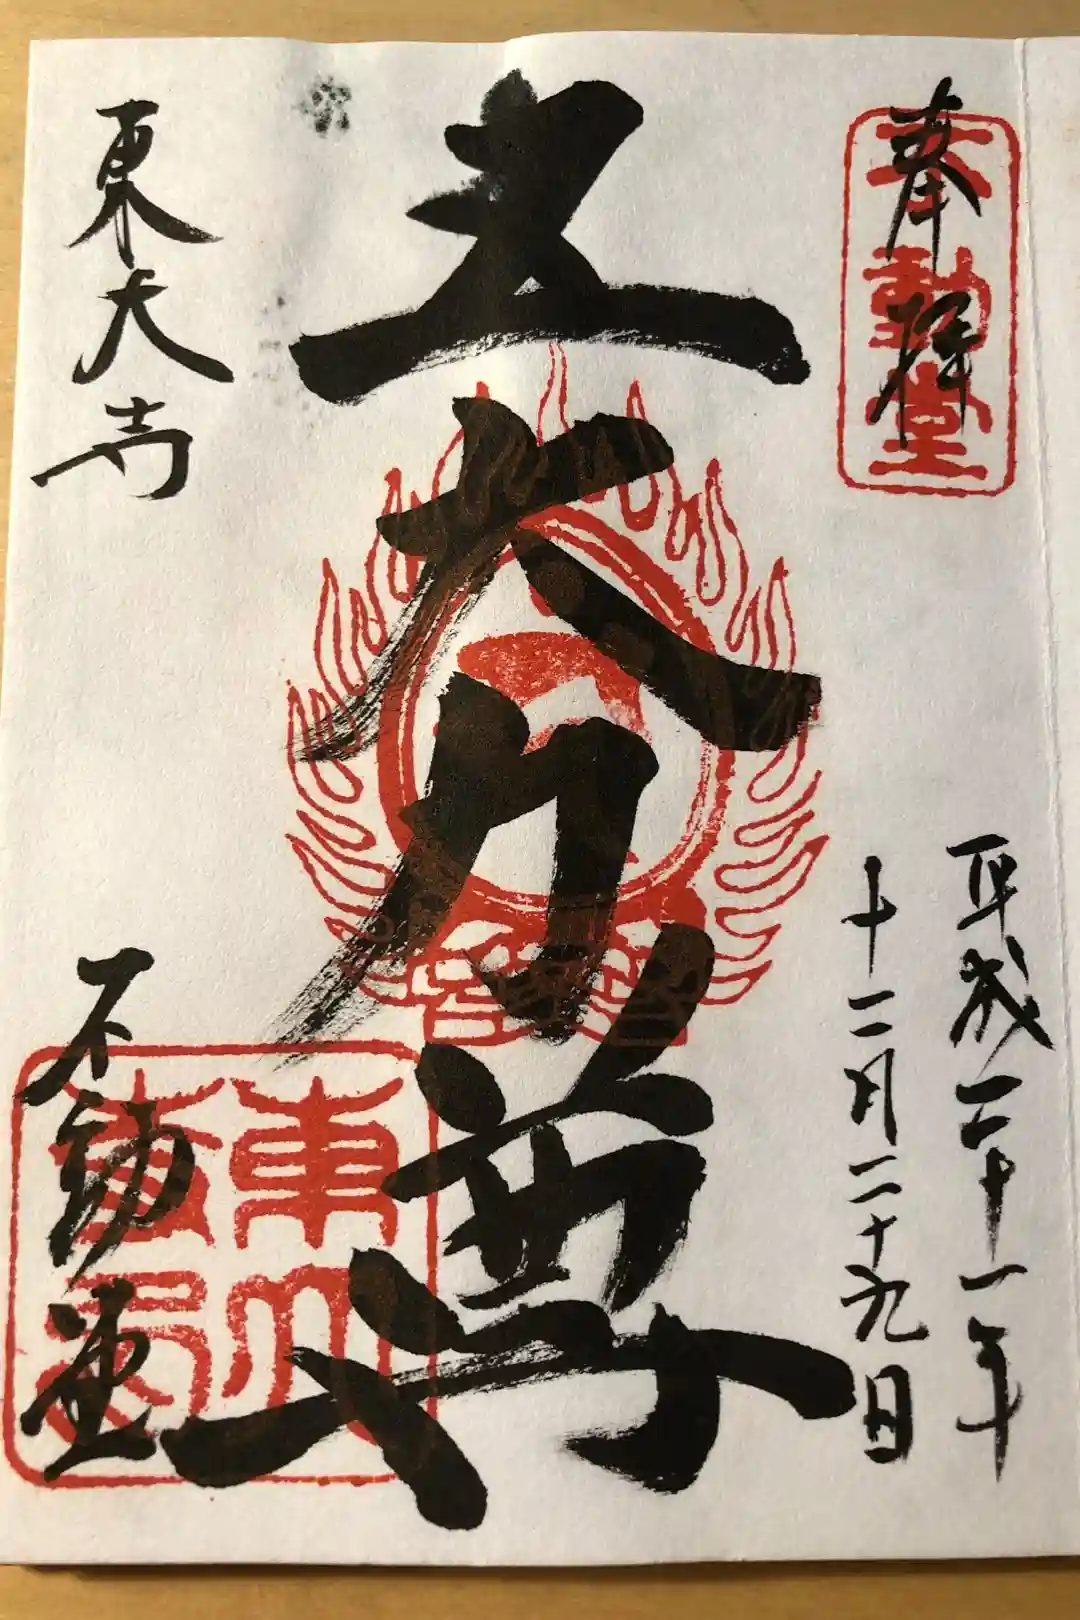 奉拝
不動堂
平成二十一年
十二月二十九日
五大力尊
東大寺
不動堂
東大